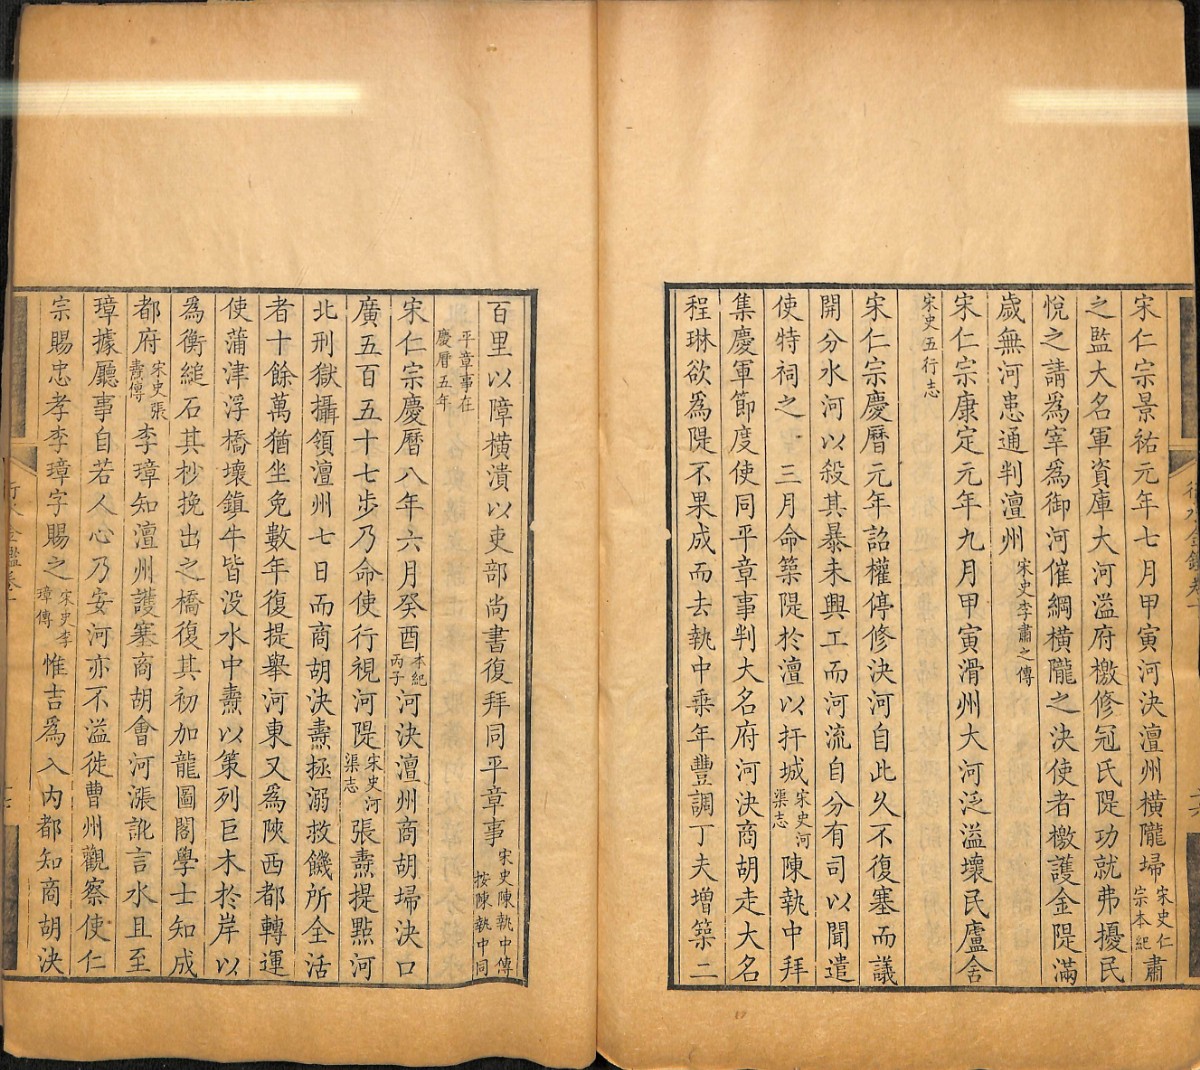 宋仁宗景祐元年七月甲寅河決澶州橫隴埽宋史仁宗本紀肅
之監大名軍資庫大河溢府檄修冠氏隄功就弗擾民
悅之請爲宰爲御河催綱橫隴之決使者檄護金隄滿
歲無河患通判澶州宋史李肅之傳
宋仁宗康定元年九月甲寅滑州大河泛溢壞民廬舍
宋史五行志
宋仁宗慶曆元年詔權停修決河自此久不復塞而議
開分水河以殺其暴未興工而河流自分有司以聞遣
使特祠之三月命築隄於澶以扞城宋史河渠志陳執中拜
集慶軍節度使同平章事判大名府河決商胡走大名
程琳欲爲隄不果成而去執中乘年豐調丁夫增築二
百里以障橫潰以吏部尚書復拜同平章事宋史陳執中傳按陳執中同
平章事在慶曆五年
宋仁宗慶曆八年六月癸酉本紀丙子河決澶州商胡埽決口
廣五百五十七步乃命使行視河隄宋史河渠志張燾提點河
北刑獄攝領澶州七日而商胡決燾拯溺救饑所全活
者十餘萬猶坐免數年復提舉河東又爲陝西都轉運
使蒲津浮橋壞鎮牛皆没水中燾以策列巨木於岸以
爲衡縋石其杪挽出之橋復其初加龍圖閣學士知成
都府宋史張燾傳李璋知澶州護塞商胡會河漲訛言水且至
璋據廳事自若人心乃安河亦不溢徙曹州觀察使仁
宗賜忠孝李璋字賜之宋史李璋傳惟吉爲入内都知商胡決